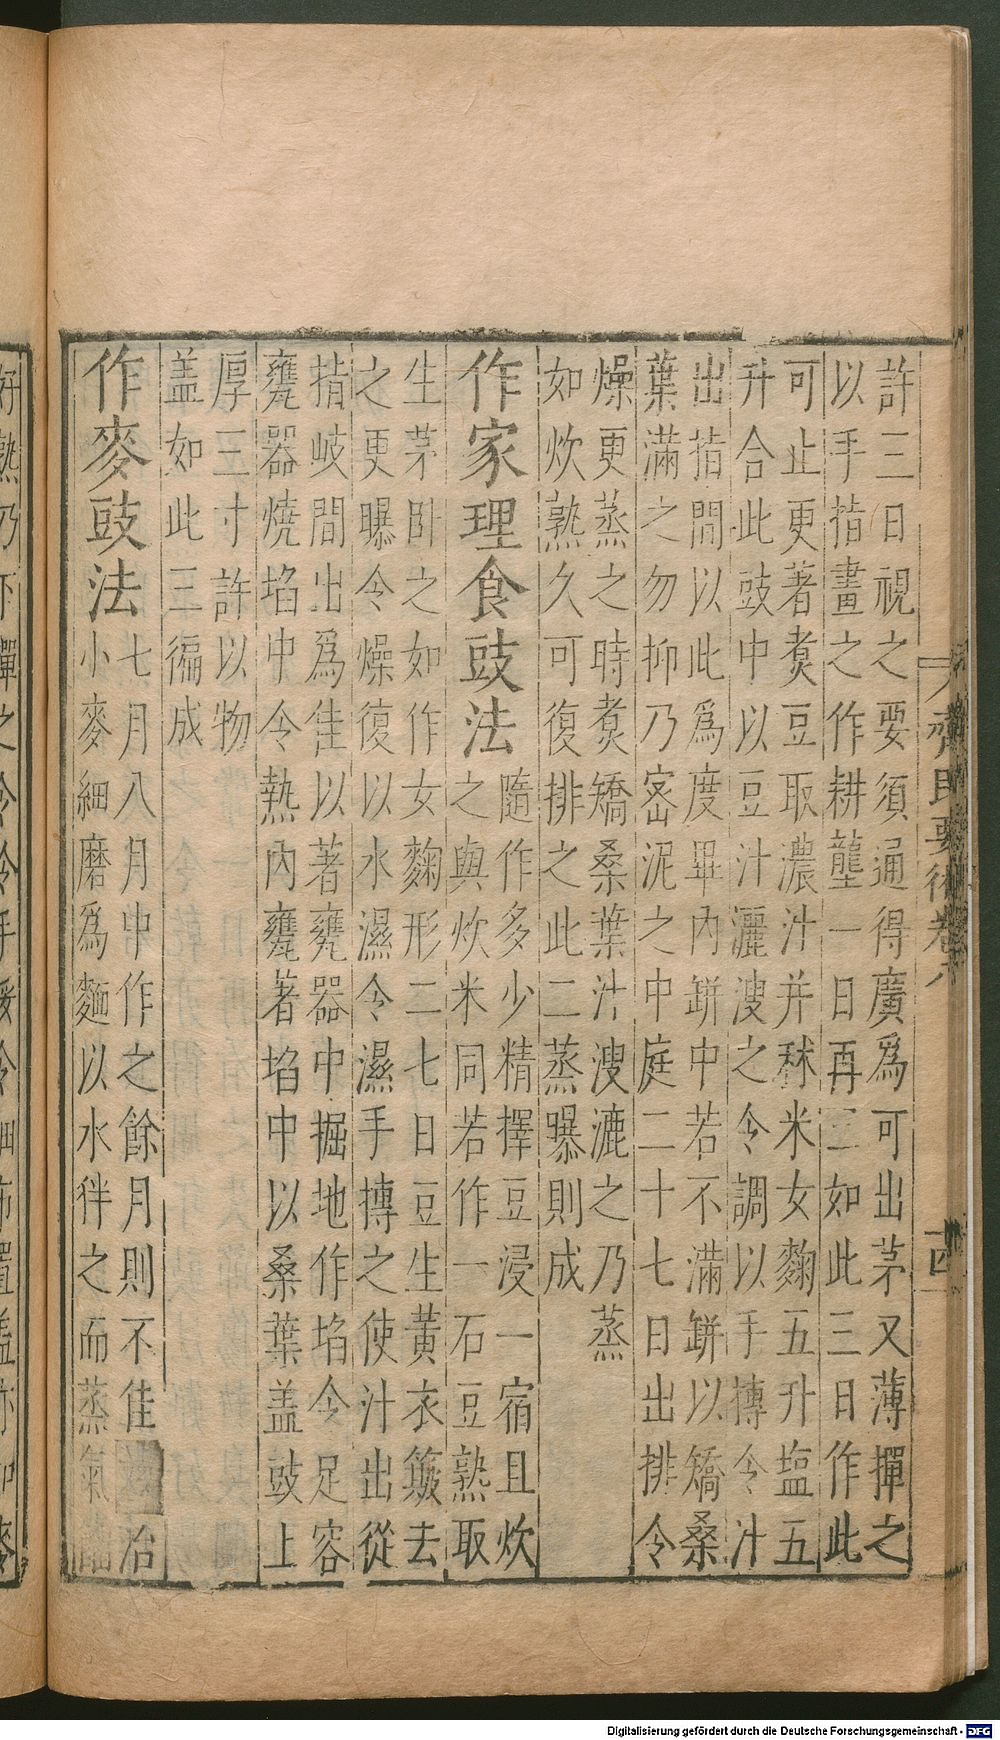 許三日視之要須通得廣爲可出茅又薄撣之
以手指畫之作耕壟一日再三如此三日作此
可止更著煮豆取濃汁并秫米女麴五升塩五
升合此豉中以豆汁灑溲之令調以手摶令汁
出指間以此爲度畢內缾中若不滿缾以矯桑
葉滿之勿抑乃宻泥之中庭二十七日出排令
燥更蒸之時煮矯桑葉汁溲漉之乃蒸
如炊熟久可復排之此二蒸曝則成
作家理食豉法
隨作多少精擇豆浸一宿且炊
之與炊米同若作一石豆熟取
生茅卧之如作女麴形二七日豆生黃衣簸去
之更曝令燥復以水濕令濕手摶之使汁出從
指岐間出爲佳以著甕器中掘地作埳令足容
甕器燒埳中令熱內甕著埳中以桑葉盖豉上
厚三寸許以物
盖如此三徧成
作麥豉法
七月八月中作之餘月則不佳 冶
小麥細磨爲麵以水伴之而蒸氣
齊民要術卷八
十四
Digitalisierung gefördert durch die Deutsche Forschungsgemeinschaft - DFG